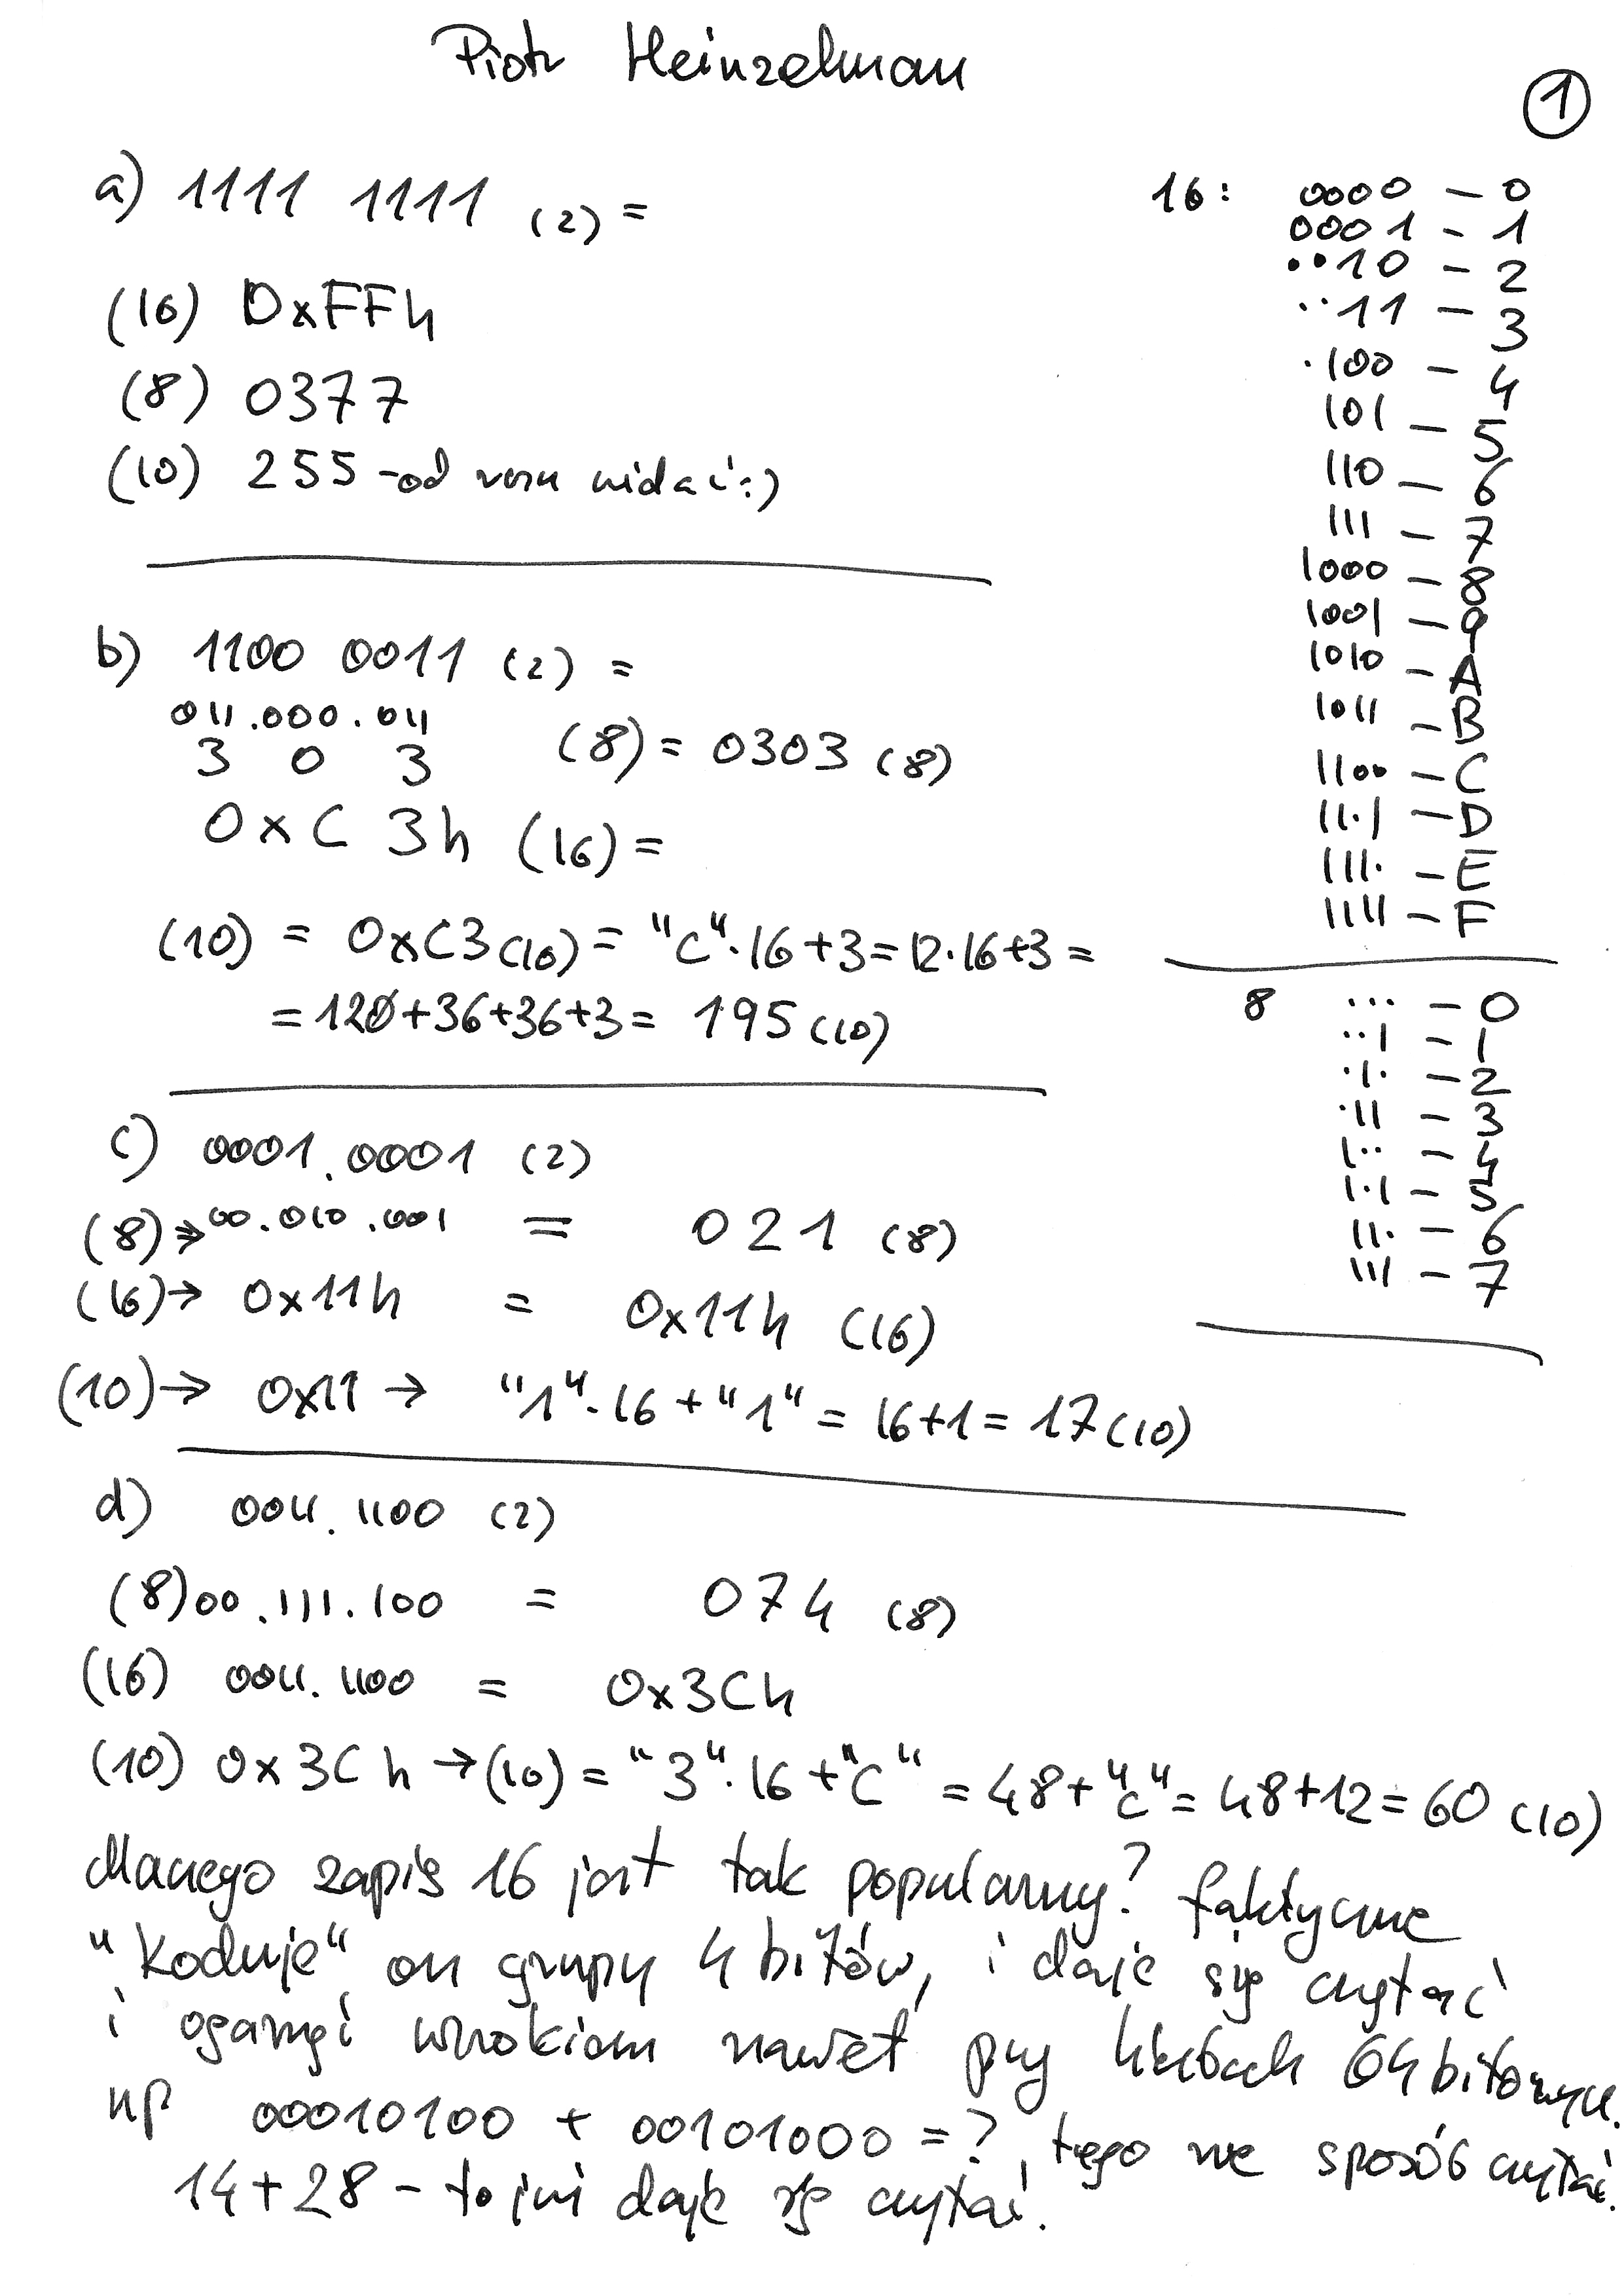 Piotr Heinzelman
1
a) 1111 1111 (2) =
(16) 0xFFh
(8) 0377
(10) 255 - od razu widać :)
b) 1100 0011 (2) =
011.000.011
3 0 3 (8) = 0303 (8)
0xC 3h (16) =
(10) = 0xC3(10) = "C"·16+3 = 12·16+3 =
= 120+36+36+3 = 195 (10)
c) 0001.0001 (2)
(8) → 00.010.001 = 021 (8)
(16) → 0x11h = 0x11h (16)
(10) → 0x11 → "1"·16 + "1" = 16+1 = 17 (10)
d) 0011.1100 (2)
(8) 00.111.100 = 074 (8)
(16) 0011.1100 = 0x3Ch
(10) 0x3Ch → (10) = "3"·16 + "C" = 48 + "C" = 48+12 = 60 (10)
dlaczego zapis 16 jest tak popularny? faktycznie
"koduje" on grupy 4 bitów, i daje się czytać
i ogarnąć wzrokiem nawet przy liczbach 64 bitowych.
np 00010100 + 00101000 = ?, tego nie sposób czytać.
14+28 - to już daje się czytać.
16: 0000 - 0
0001 - 1
··10 - 2
··11 - 3
·100 - 4
101 - 5
110 - 6
111 - 7
1000 - 8
1001 - 9
1010 - A
1011 - B
1100 - C
11·1 - D
111· - E
1111 - F
8 ··· - 0
··1 - 1
·1· - 2
·11 - 3
1·· - 4
1·1 - 5
11· - 6
111 - 7